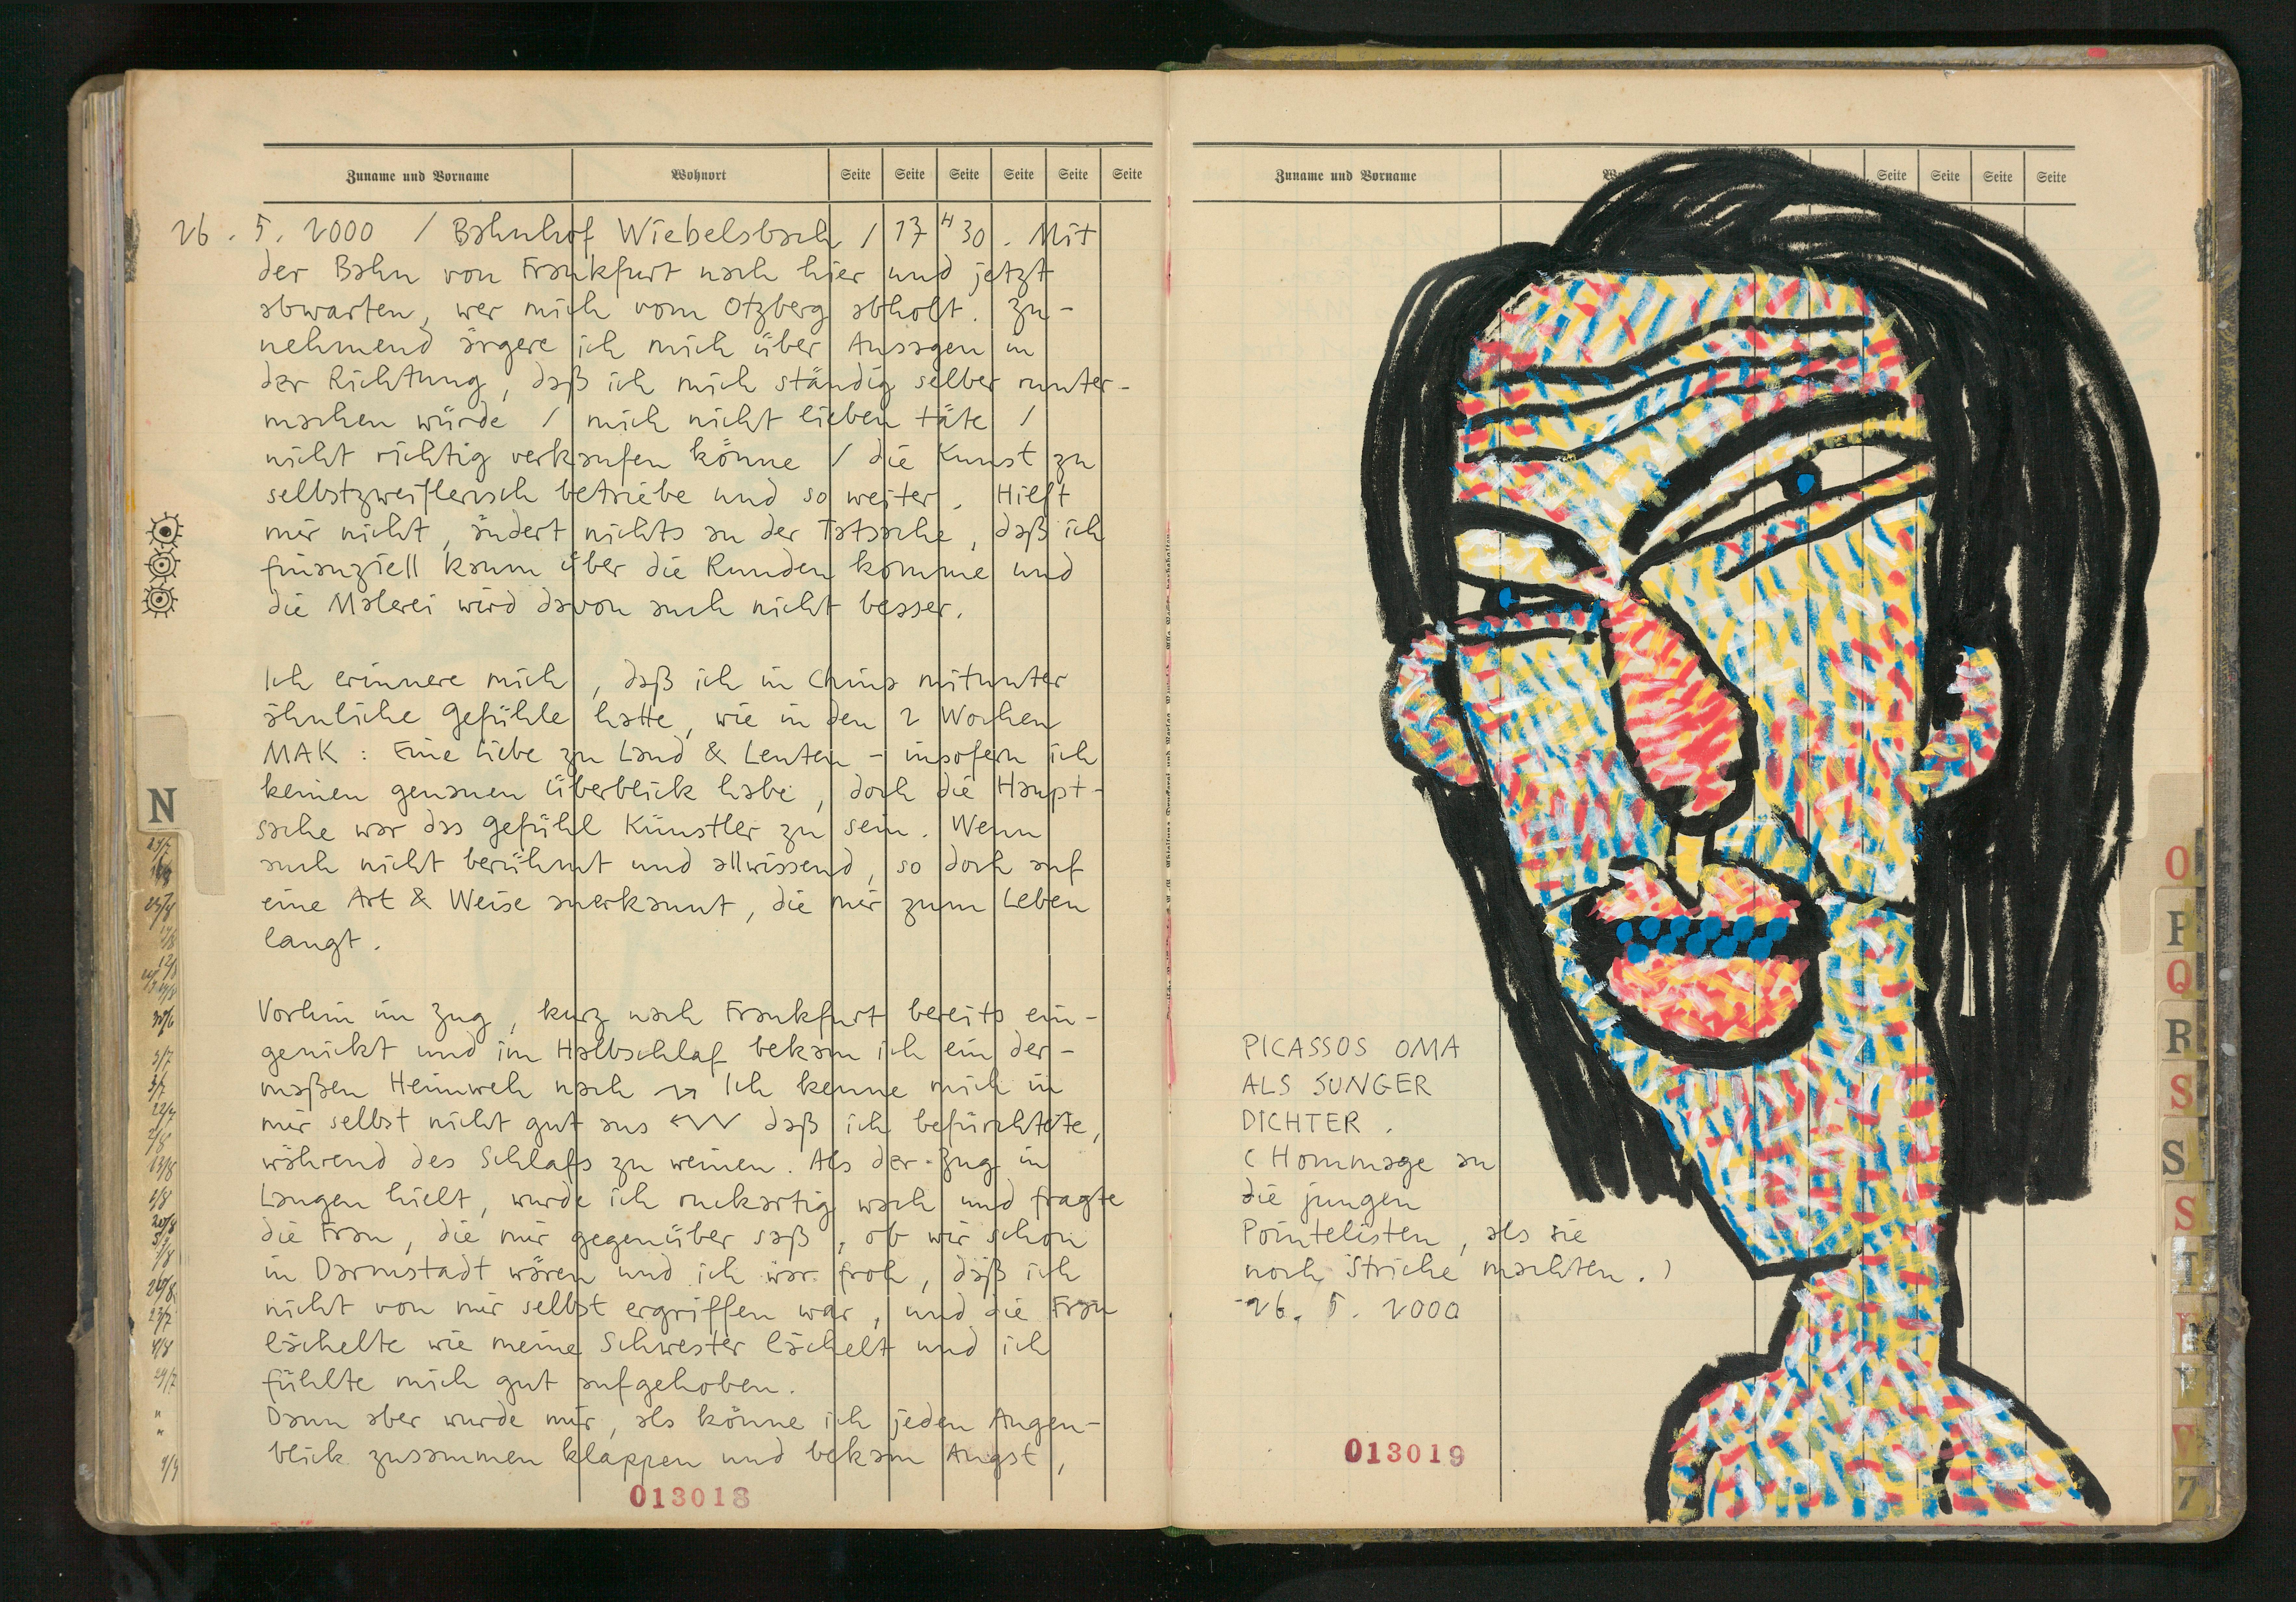 Zuname und Vorname Wohnort Seite Seite Seite Seite Seite Seite
26. 5. 2000 / Bahnhof Wiebelsbach / 17 H 30. Mit
der Bahn von Frankfurt nach hier und jetzt
abwarten, wer mich vom Otzberg abholt. Zu-
nehmend ärgere ich mich über Aussagen in
der Richtung, daß ich mich ständig selber runter-
machen würde / mich nicht lieben täte /
nicht richtig verkaufen könne / die Kunst zu
selbstzweiflerisch betriebe und so weiter. Hilft
mir nicht, ändert nichts an der Tatsache, daß ich
finanziell kaum über die Runden komme und
die Malerei wird davon auch nicht besser.
Ich erinnere mich, daß ich in China mitunter
ähnliche Gefühle hatte, wie in den 2 Wochen
MAK : Eine Liebe zu Land & Leuten - insofern ich
keinen genauen Überblick habe, doch die Haupt-
sache war das Gefühl Künstler zu sein. Wenn
auch nicht berühmt und allwissend, so doch auf
eine Art & Weise anerkannt, die mir zum Leben
langt.
Vorhin im Zug, kurz nach Frankfurt bereits ein-
genickt und im Halbschlaf bekam ich ein der-
maßen Heimweh nach Ich kenne mich in
mir selbst nicht gut aus daß ich befürchtete,
während des Schlafs zu weinen. Als der Zug in
Langen hielt, wurde ich ruckartig wach und fragte
die Frau, die mir gegenüber saß, ob wir schon
in Darmstadt wären und ich war froh, daß ich
nicht von mir selbst ergriffen war, und die Frau
lächelte wie meine Schwester lächelt und ich
fühlte mich gut aufgehoben.
Dann aber wurde mir, als könne ich jeden Augen-
blick zusammen klappen und bekam Angst,
013018
N
Zuname und Vorname Seite Seite Seite Seite
PICASSOS OMA
ALS JUNGER
DICHTER.
(Hommage an
die jungen
Pointelisten, als sie
noch Striche machten.)
26. 5. 2000
013019
O
P
Q
R
S
S
S